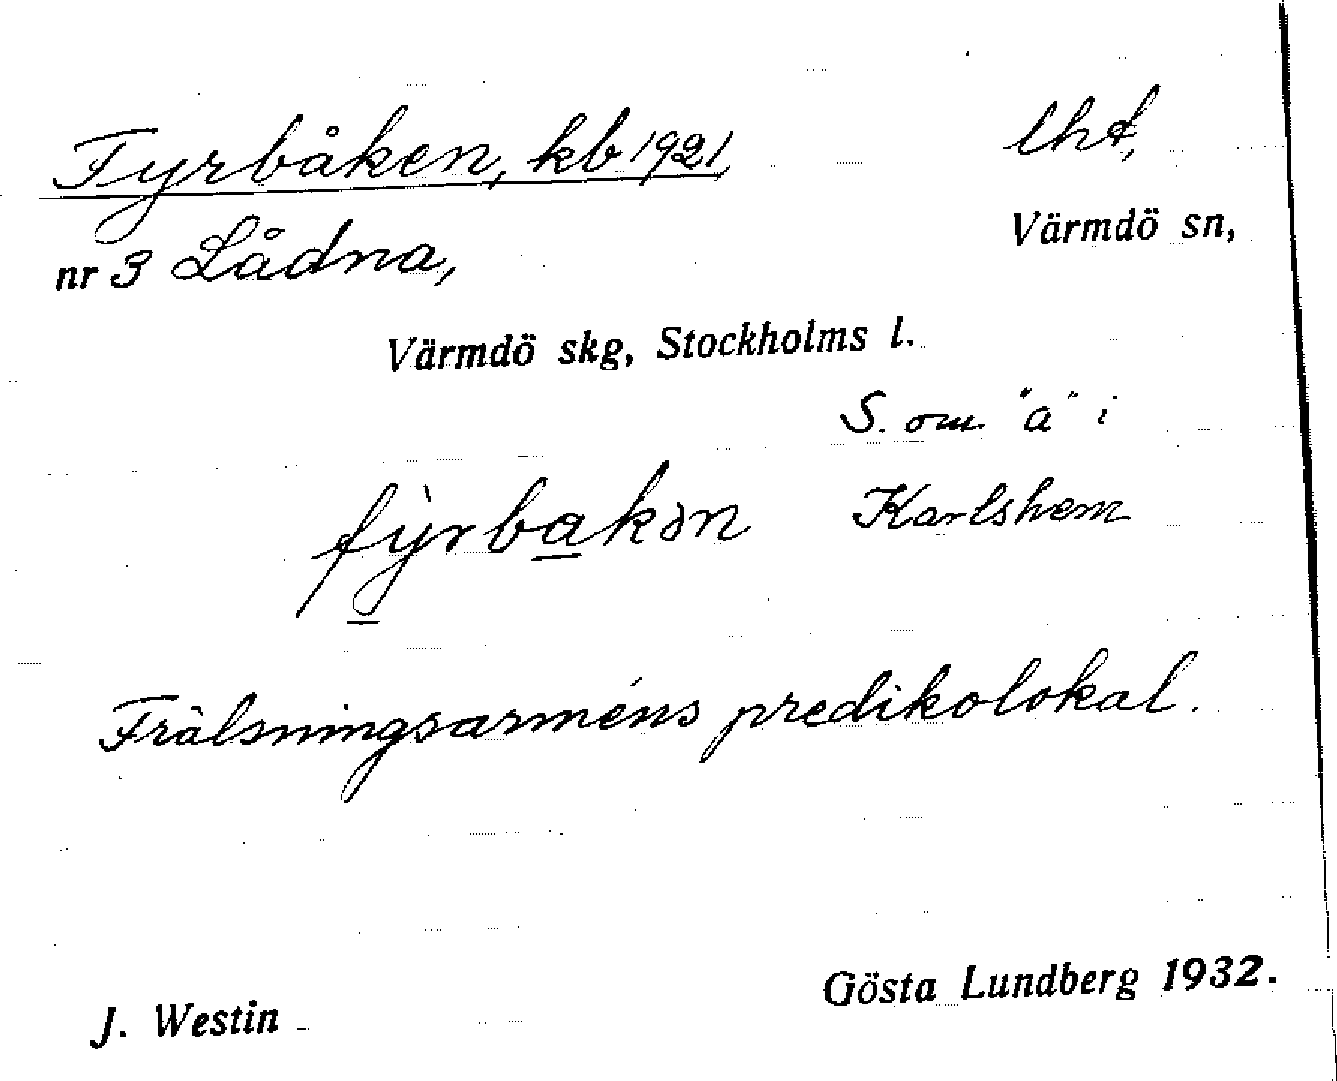 Fyrbåken, kb 1921, lht,
nr 3 Lådna, Värmdö sn,
Värmdö skg, Stockholms l.
S. om "a" i
fỳrbakən Karlshem
Frälsningsarméns predikolokal.
J. Westin Gösta Lundberg 1932.